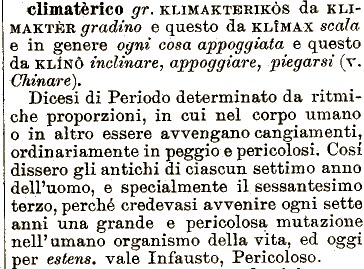 climatèrico gr. KLIMAKTERIKÒS da KLI-
MAKTÈR gradino e questo da KLÎMAX scala
e in genere ogni cosa appoggiata e questo
da KLÍNÔ inclinare, appoggiare, piegarsi (v.
Chinare).
Dicesi di Periodo determinato da ritmi-
che proporzioni, in cui nel corpo umano
o in altro essere avvengano cangiamenti,
ordinariamente in peggio e pericolosi. Così
dissero gli antichi di ciascun settimo anno
dell'uomo, e specialmente il sessantesimo
terzo, perché credevasi avvenire ogni sette
anni una grande e pericolosa mutazione
nell'umano organismo della vita, ed oggi
per estens. vale Infausto, Pericoloso.